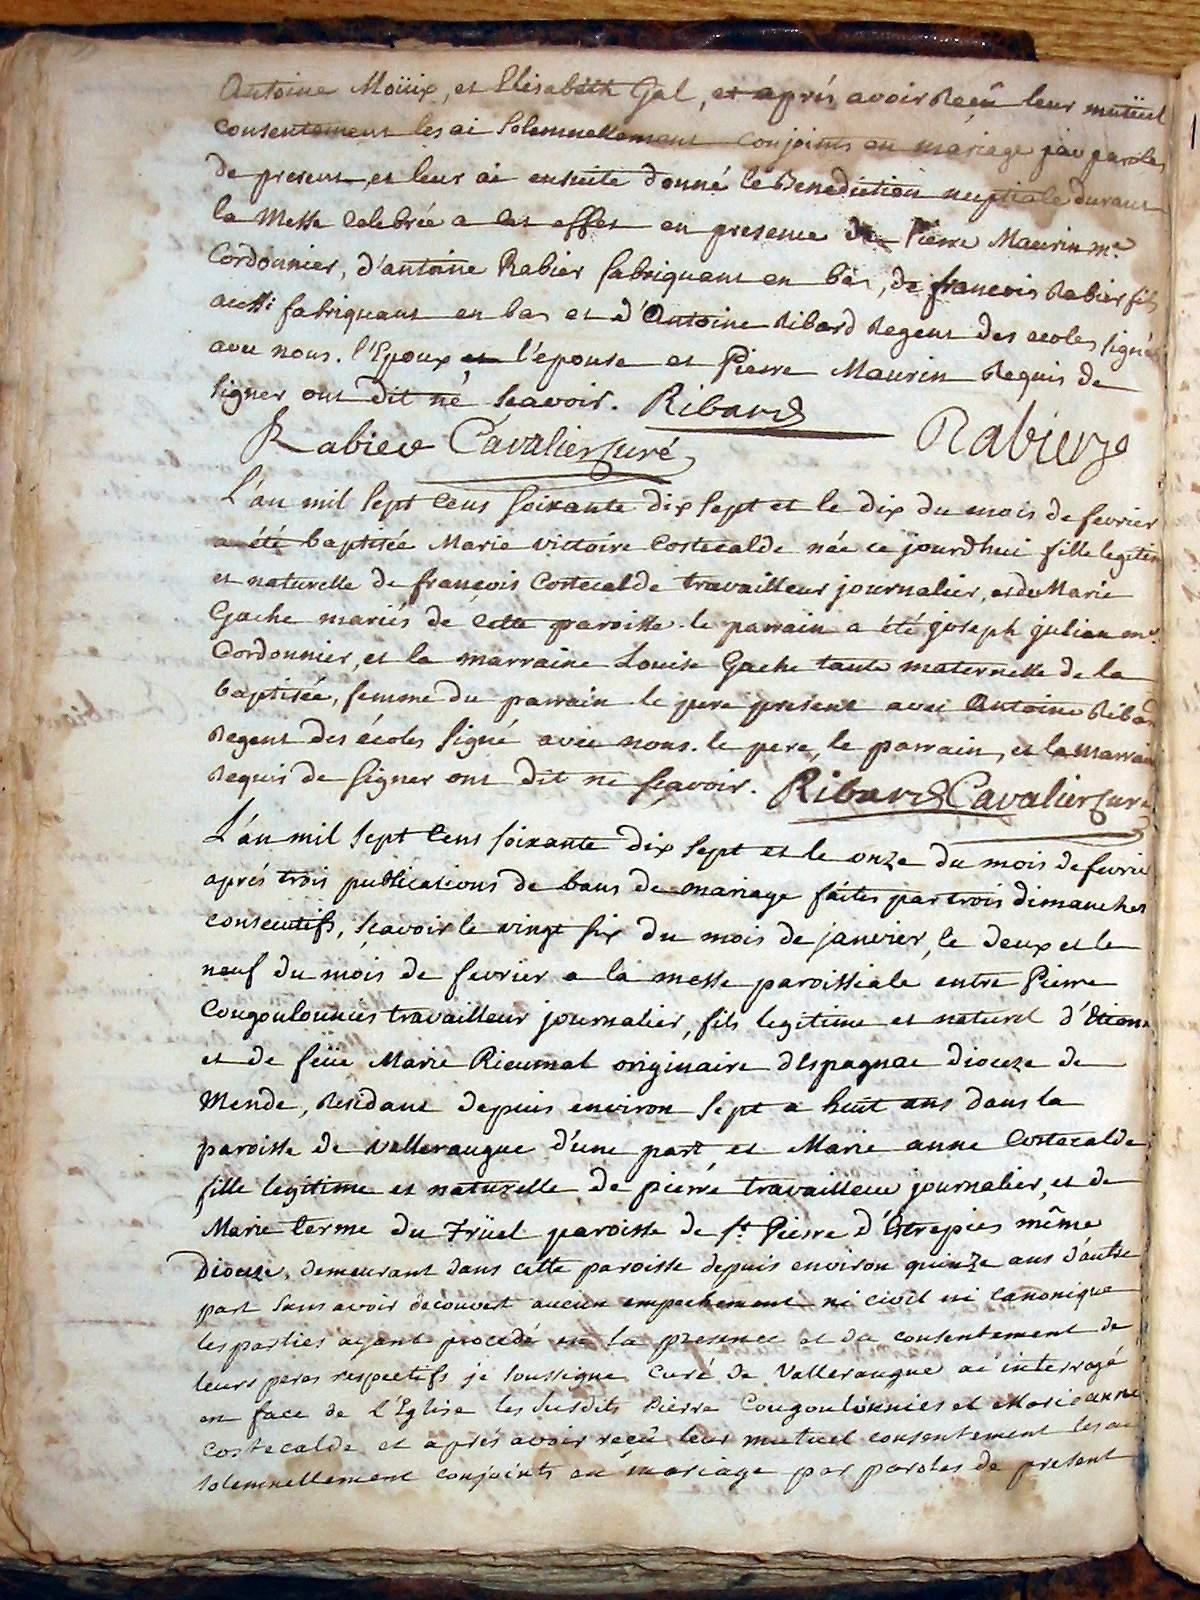 Antoine Moüix, et Elisabeth Gal, et aprés avoir Reçû leur mutüel
consentement les ai Solemnellement conjoints en mariage par paroles
de present, et leur ai ensuite donné le Benediction nuptiale durant
la Messe Celebrée a cet effet en presence de Pierre Maurin me.
Cordonnier, d'antoine Rabier fabriquant en bas, de françois Rabier fils
aussi fabriquant en bas et d'Antoine Ribard Regent des ecoles signés
avec nous. l'Epoux, et l'epouse et Pierre Maurin Requis de
signer ont dit né scavoir. Ribard
Rabier Cavalier Curé Rabier
L'an mil sept cens soixante dix sept et le dix du mois de fevrier
a été baptisée Marie victoire Costecalde née ce jourdhui fille legitim
et naturelle de françois Costecalde travailleur journalier, et de Marie
Gache mariés de cette paroisse. le parrain a été joseph julien me.
Cordonnier, et la marraine Louise Gache tante maternelle de la
baptisée, femme du parrain le pere present avec Antoine Ribard
Regent des écoles signé avec nous. le pere, le parrain, et la marrain
Requis de signer ont dit ne scavoir. Ribard Cavalier Curé
L'an mil sept cens soixante dix sept et le onze du mois de fevrie
aprés trois publications de bans de mariage faites par trois dimanches
consecutifs, scavoir le vingt six du mois de janvier, le deux et le
neuf du mois de fevrier a la messe paroissiale entre Pierre
Cougoulounies travailleur journalier, fils legitime et naturel d'Etiene
et de feüe Marie Rieumal originaire dEspagnac dioceze de
Mende, Residant depuis environ sept a huit ans dans la
paroisse de valleraugue d'une part et Marie anne Costecalde
fille legitime et naturelle de pierre travailleur journalier, et de
Marie terme du Trüel paroisse de st. Pierre d'Etrepies même
Dioceze, demeurant dans cette paroisse depuis environ quinze ans d'autre
part sans avoir decouvert aucun empechement ni civil ni canonique
les parties ayant procedé en la presence et du consentement de
leurs peres respectifs je soussigné Curé de Valleraugue ai interrogé
en face de l'Eglise les susdits Pierre Cougoulounies et Marie anne
Costecalde et aprés avoir reçû leur mutuel consentement les ai
solemnellement conjoints en mariage par paroles de present